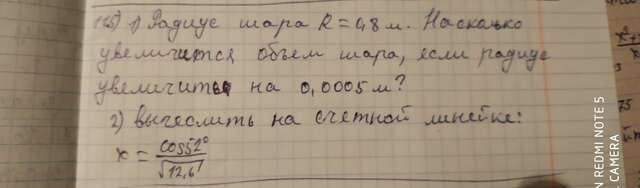 115) 1) Радиус шара R = 0,8 м. Насколько
увеличится объем шара, если радиус
увеличить на 0,0005 м?
2) вычеслить на счетной линейке:
x = cos52° / √12,6
N REDMI NOTE 5
CAMERA
75